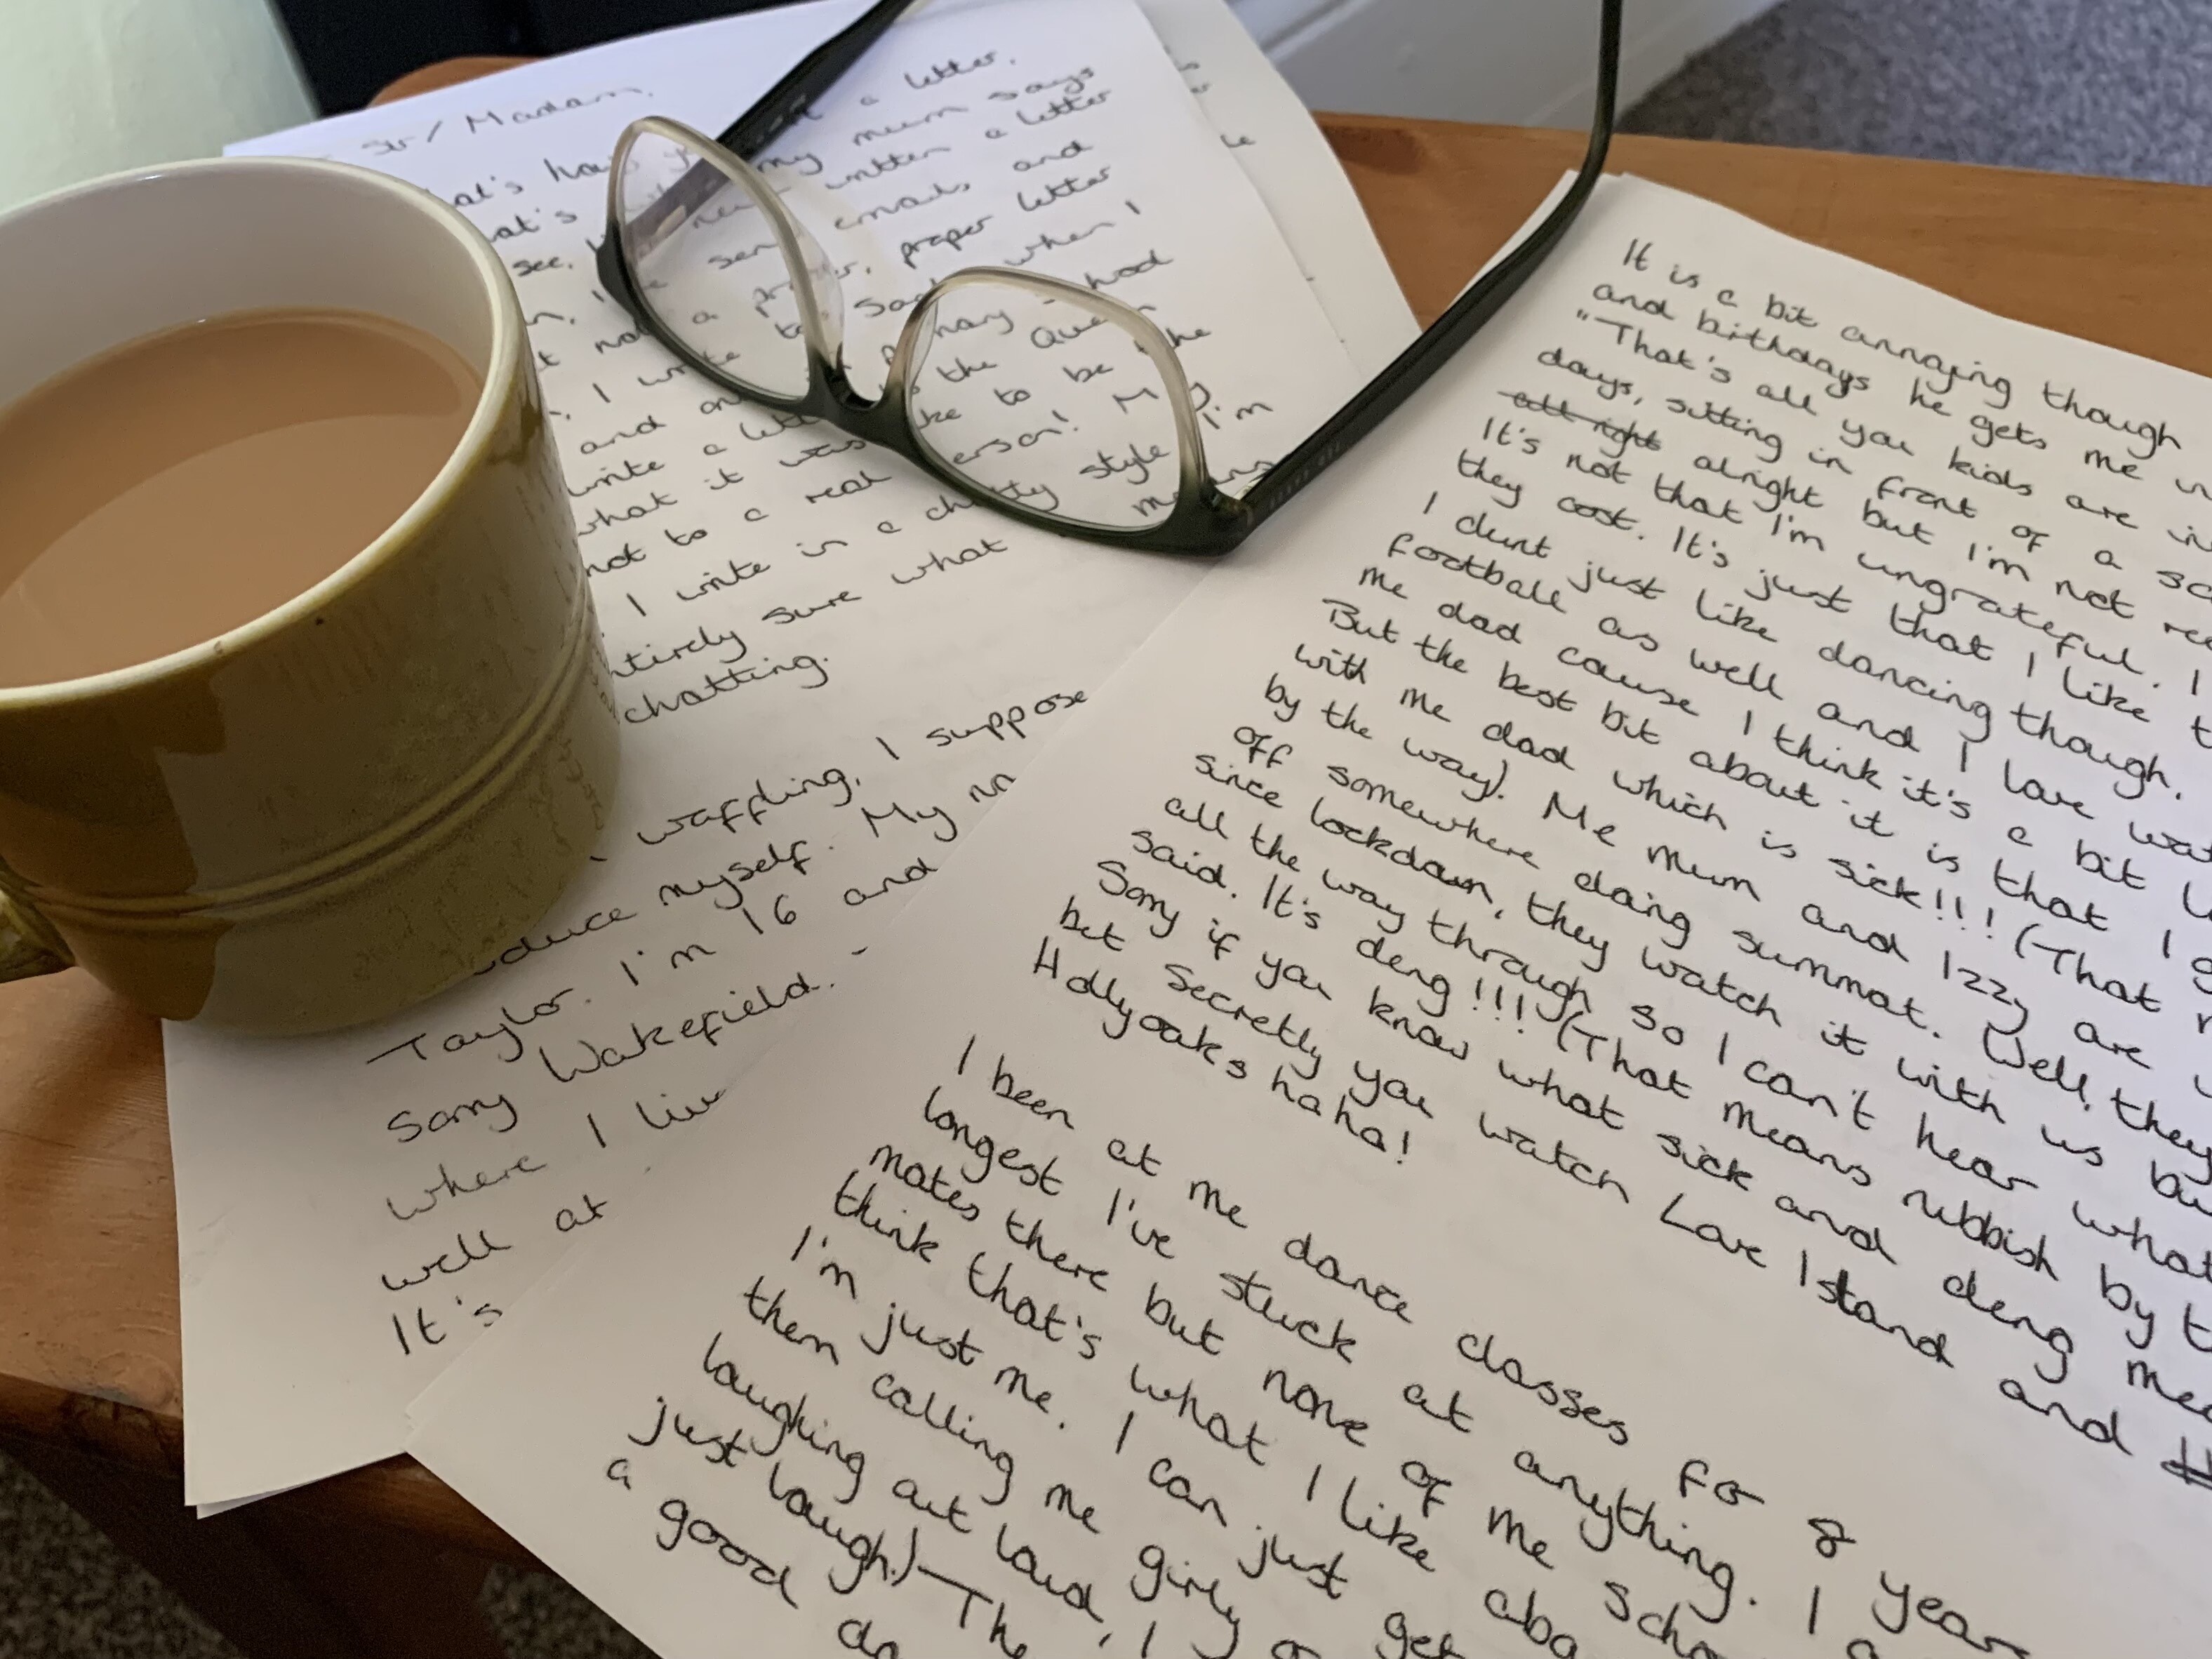 Sir/Madam,
a letter.
my mum says
written a letter
see.
emails and
proper letter
when I
I write to
and
the Queen
write a
to be the
what it was
not to a real person! My
I write in a chatty style I'm
entirely sure what means
chatting.
waffling, I suppose
myself. My
Taylor. I'm 16 and
Sorry Wakefield.
where I live
well at
It's
It is a bit annoying though
and birthdays he gets me
"That's all you kids are
days, sitting in front of a
all right alright but I'm not
It's not that I'm ungrateful. I
they cost. It's just that I like
I dunt just like dancing though.
football as well and I love
me dad cause I think it's a bit
But the best bit about it is that I
with me dad which is sick!!! (That
by the way). Me mum and Izzy are
off somewhere doing summat. Well, they
since lockdown, they watch it with us
all the way through so I can't hear what
said. It's deng!!! (That means rubbish by
Sorry if you know what sick and deng
but secretly you watch Love Island and
Hollyoaks haha!
I been at me dance classes for 8 years
longest I've stuck at anything. I
mates there but none of me
think that's what I like
I'm just me. I can just get
them calling me girly or
laughing out loud, I
just laugh.) The
a good